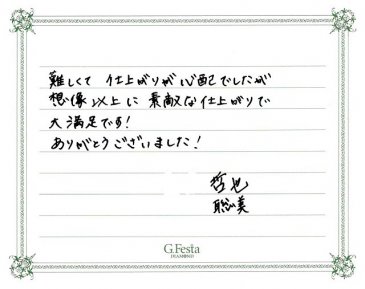 難しくて 仕上がりが心配でしたが
想像以上に 素敵な仕上がりで
大満足です!
ありがとうございました!
哲也
聡美
G.Festa
DIAMOND